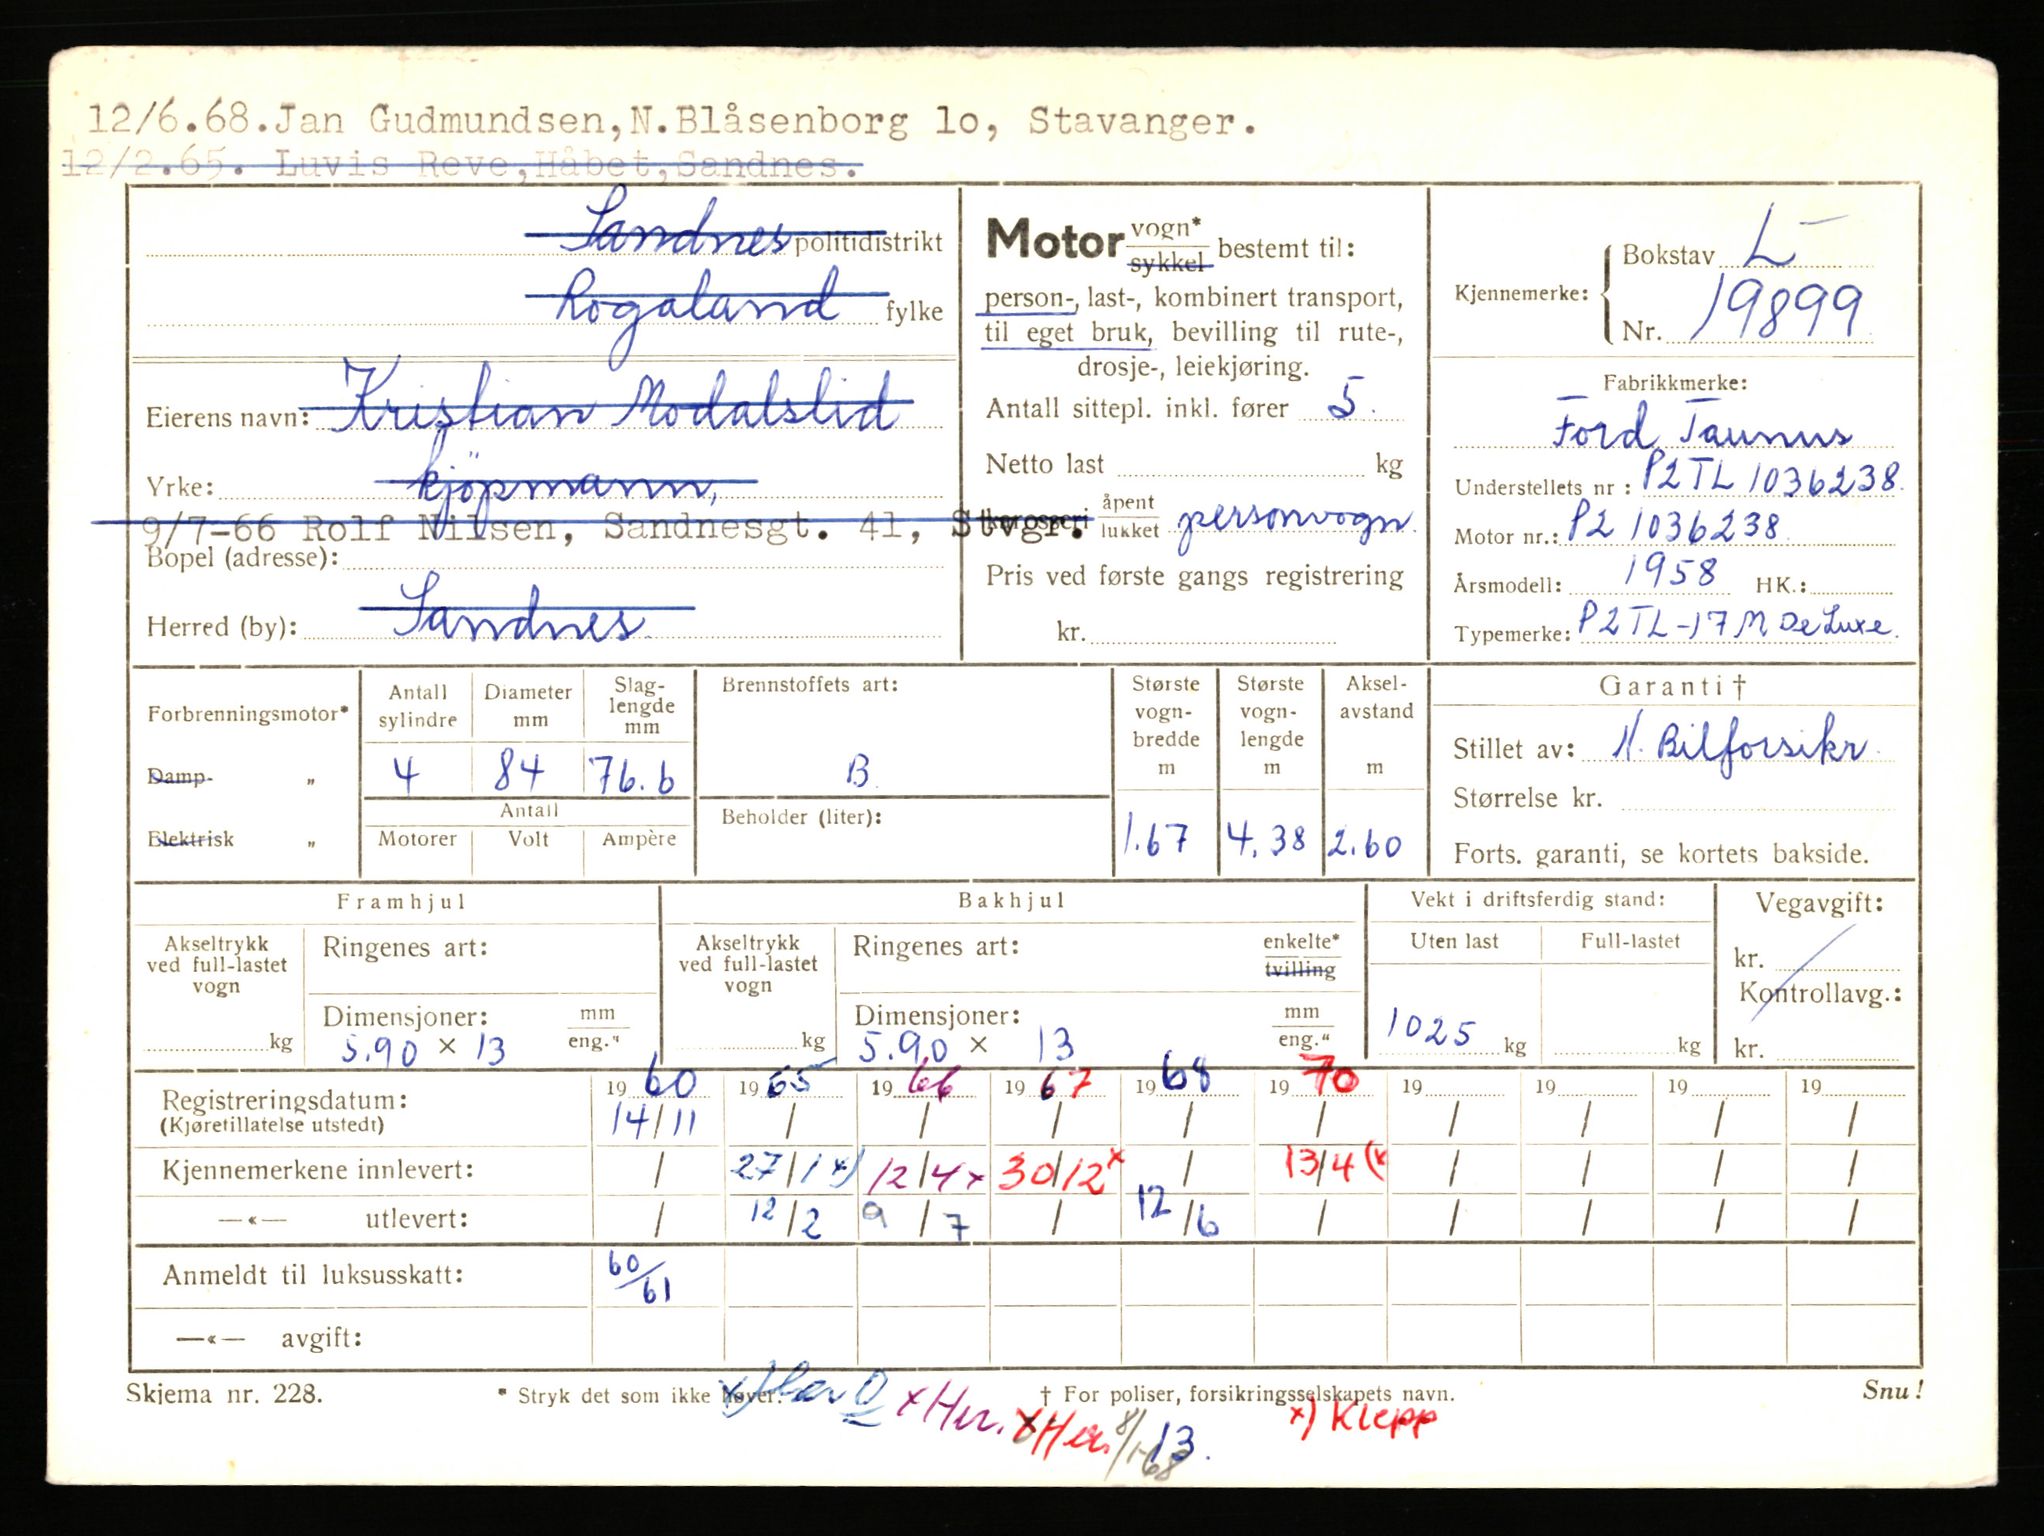 12/6.68.Jan Gudmundsen,N.Blåsenborg lo, Stavanger.
12/2.65. Luvis Reve,Håbet,Sandnes.
Sandnes politidistrikt
Rogaland fylke
Eierens navn: Kristian Modalslid
Yrke: kjöpmann,
9/7-66 Rolf Nilsen, Sandnesgt. 41, Stvgr.
Bopel (adresse):
Herred (by): Sandnes
Motor vogn* sykkel bestemt til:
person-, last-, kombinert transport,
til eget bruk, bevilling til rute-,
drosje-, leiekjøring.
Antall sittepl. inkl. fører 5.
Netto last kg
karosseri åpent lukket personvogn
Pris ved første gangs registrering
kr.
Kjennemerke: Bokstav L-
Nr. 19899
Fabrikkmerke:
Ford Taunus
Understellets nr : P2TL 1036238.
Motor nr.: P2 1036238
Årsmodell: 1958 HK.:
Typemerke: P2TL-17M De Luxe.
Forbrenningsmotor*
Damp- „
Elektrisk „
Antall sylindre Diameter mm Slag-lengde mm
4 84 76.6
Antall
Motorer Volt Ampère
Brennstoffets art:
B
Beholder (liter):
Største vogn-bredde m Største vogn-lengde m Aksel-avstand m
1.67 4.38 2.60
Garanti †
Stillet av: N. Bilforsikr.
Størrelse kr.
Forts. garanti, se kortets bakside.
Framhjul
Akseltrykk ved full-lastet vogn
kg
Ringenes art:
Dimensjoner: mm eng."
5.90 × 13
Bakhjul
Akseltrykk ved full-lastet vogn
kg
Ringenes art: enkelte* tvilling
Dimensjoner: mm eng."
5.90 × 13
Vekt i driftsferdig stand:
Uten last Full-lastet
1025 kg kg
Vegavgift:
kr.
Kontrollavg.:
kr.
1960 1965 1966 1967 1968 1970 19 19 19 19
Registreringsdatum: 14/11 / / / / / / / / /
(Kjøretillatelse utstedt)
Kjennemerkene innlevert: / 27/1 x) 12/4 x 30/12 x / 13/4 (x / / / /
—«— utlevert: / 12/2 9/7 / 12/6 / / / / /
Anmeldt til luksusskatt: 60/61
—«— avgift:
Skjema nr. 228. * Stryk det som ikke høver. † For poliser, forsikringsselskapets navn. Snu!
x) Her O x Her. x Her. 8/1-68 13. x) Klepp